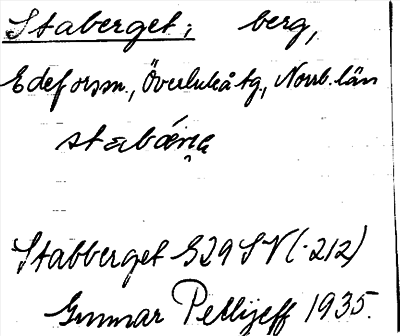 Staberget; berg,
Edeforsm., Överluleå tg, Norrb. län
Stabberget S29 SV (·212)
Gunnar Pellijeff 1935.